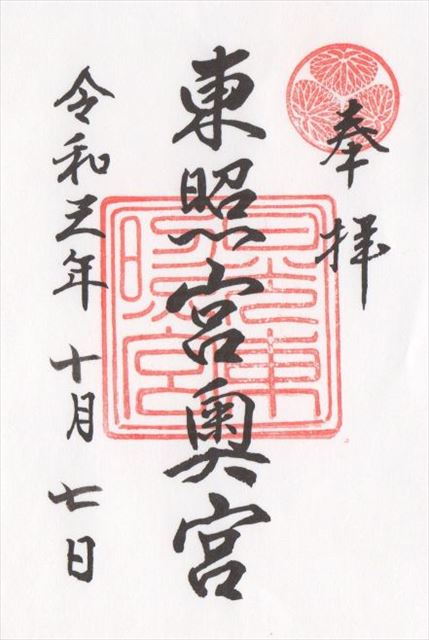 奉拝
東照宮奥宮
令和元年十月七日
日光東
照宮